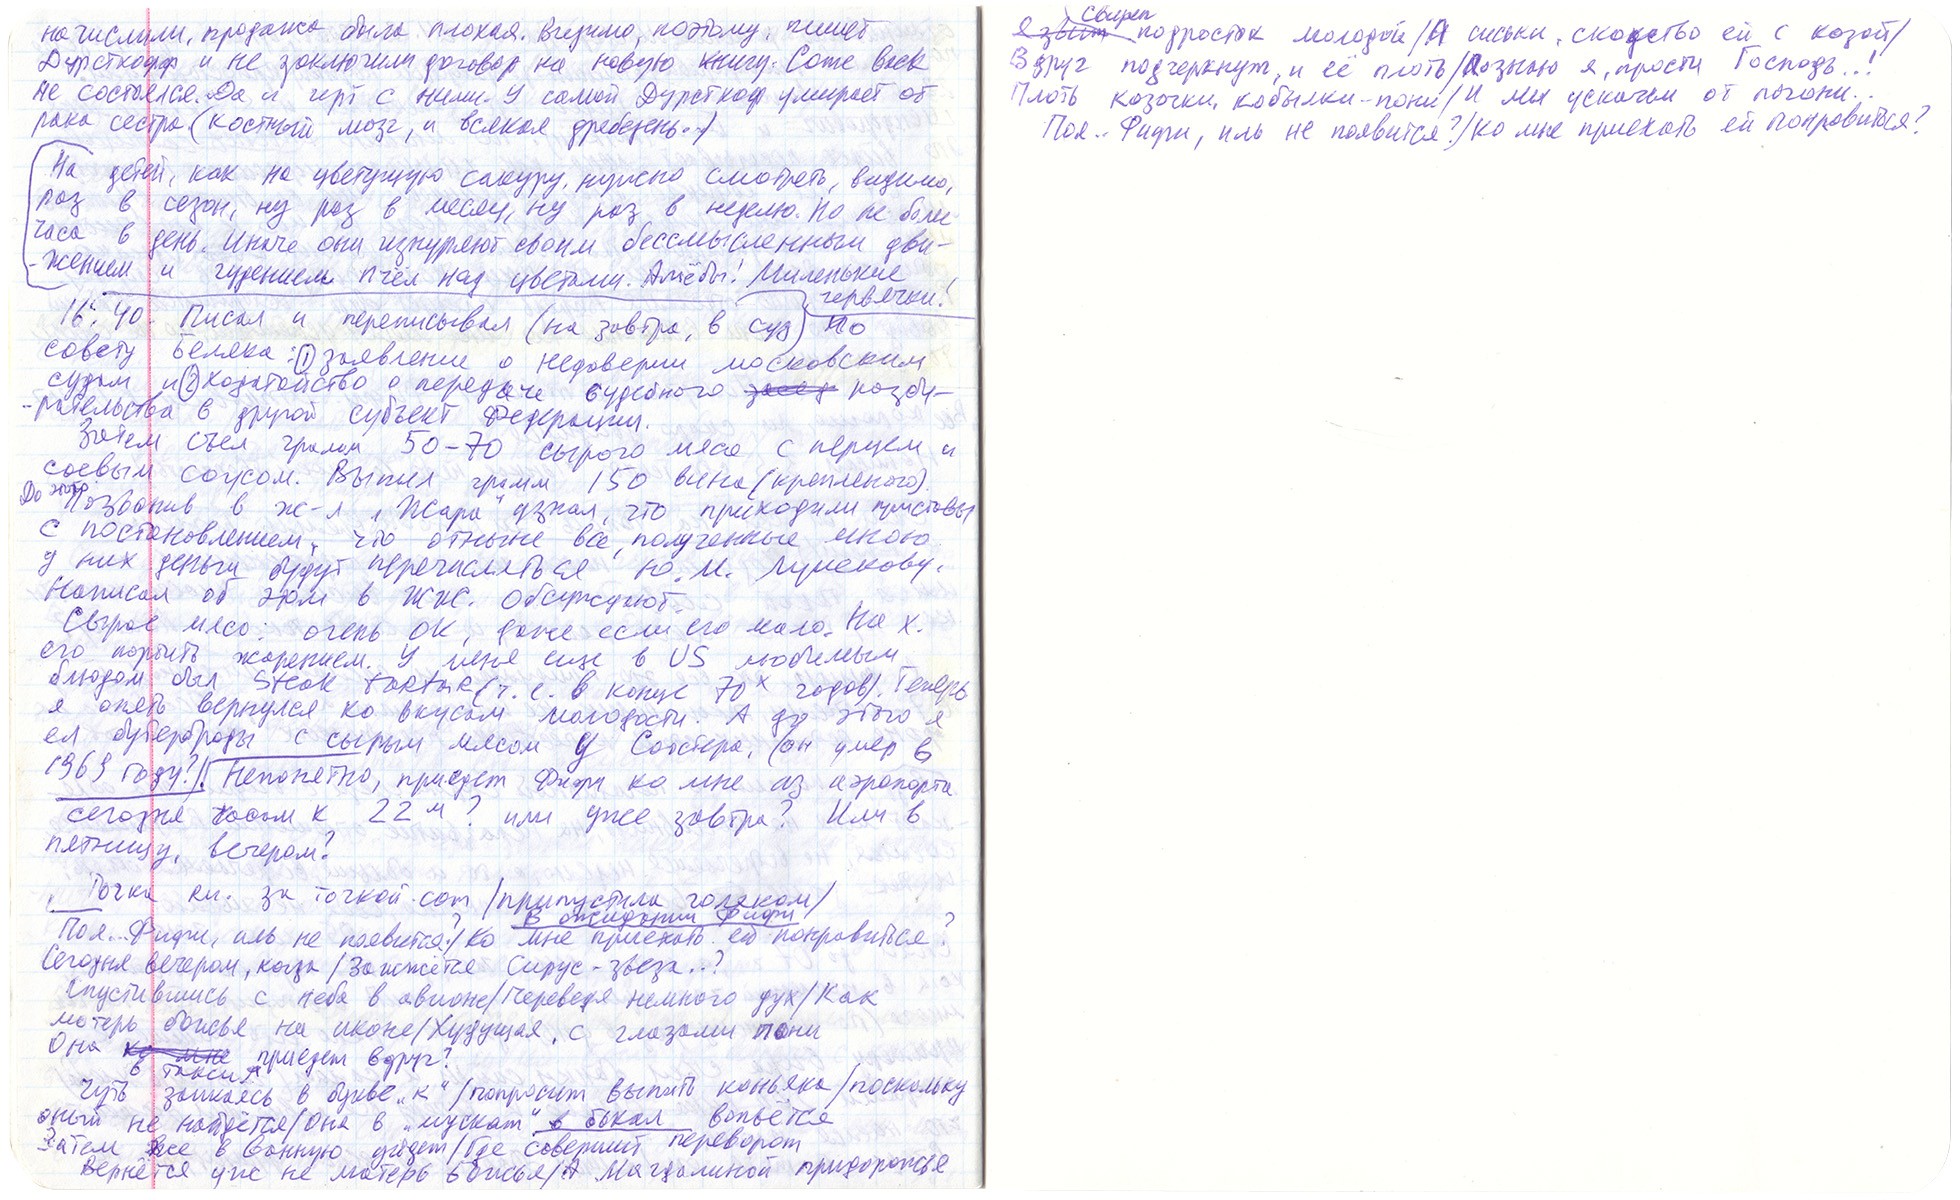 начислили, продажа была плохая. Видимо, поэтому, пишет
Дурсткофф и не заключили договор на новую книгу. Come back
не состоялся. Да и чёрт с ними. У самой Дурсткоф умирает от
рака сестра (костный мозг, и всякая дребедень..)
На детей, как на цветущую сакуру, нужно смотреть, видимо,
раз в сезон, ну раз в месяц, ну раз в неделю. Но не более
часа в день. Иначе они изнуряют своим бессмысленным дви-
-жением и гудением пчёл над цветами. Амёбы! Миленькие
червячки!
16ч. 40. Писал и переписывал (на завтра, в суд) по
совету Беляка: ① заявление о недоверии московским
судам и ② ходатайство о передаче судебного разби-
-рательства в другой субъект Федерации.
Затем съел грамм 50-70 сырого мяса с перцем и
соевым соусом. Выпил грамм 150 вина (креплёного).
До этого
Позвонив в ж-л „Жара" узнал, что приходили приставы
с постановлением, что отныне все, полученные мною
у них деньги будут перечисляться Ю. М. Лужкову.
Написал об этом в ЖЖ. Обсуждают.
Сырое мясо: очень ОК, даже если его мало. На х.
его портить жарением. У меня ещё в US любимым
блюдом был Steak tartare (т. е. в конце 70х годов). Теперь
я опять вернулся ко вкусам молодости. А до этого я
ел бутерброды с сырым мясом у Соостера, (он умер в
1969 году?). Непонятно, приедет Фифи ко мне из аэропорта
сегодня часам к 22 ч? или уже завтра? Или в
пятницу, вечером?
Точка ru. за точкой.com /припустила голяком/
В ожидании Фифи
Поя.. Фифи, иль не появится?/Ко мне приехать ей понравиться?
Сегодня вечером, когда /Зажжётся Сирус-звезда..?
Спустившись с неба в авионе/Переведя немного дух/Как
матерь божья на иконе/Худущая, с глазами пони
Она приедет вдруг?
в такси
Чуть заикаясь в букве „к"/попросит выпить коньяка/поскольку
оный не найдётся/Она в „мускат" в бокал вопьётся
Затем все в ванную уйдет/Где совершит переворот
Вернётся уже не матерь Божья/А Магдалиной придорожья
свиреп
подросток молодой/А сиськи, сходство ей с козой/
Вдруг подчеркнут, и её плоть/Познаю я, прости Господь..!
Плоть козочки, кобылки-пони/И мы ускачем от погони..
Поя.. Фифи, иль не появится?/Ко мне приехать ей понравиться?